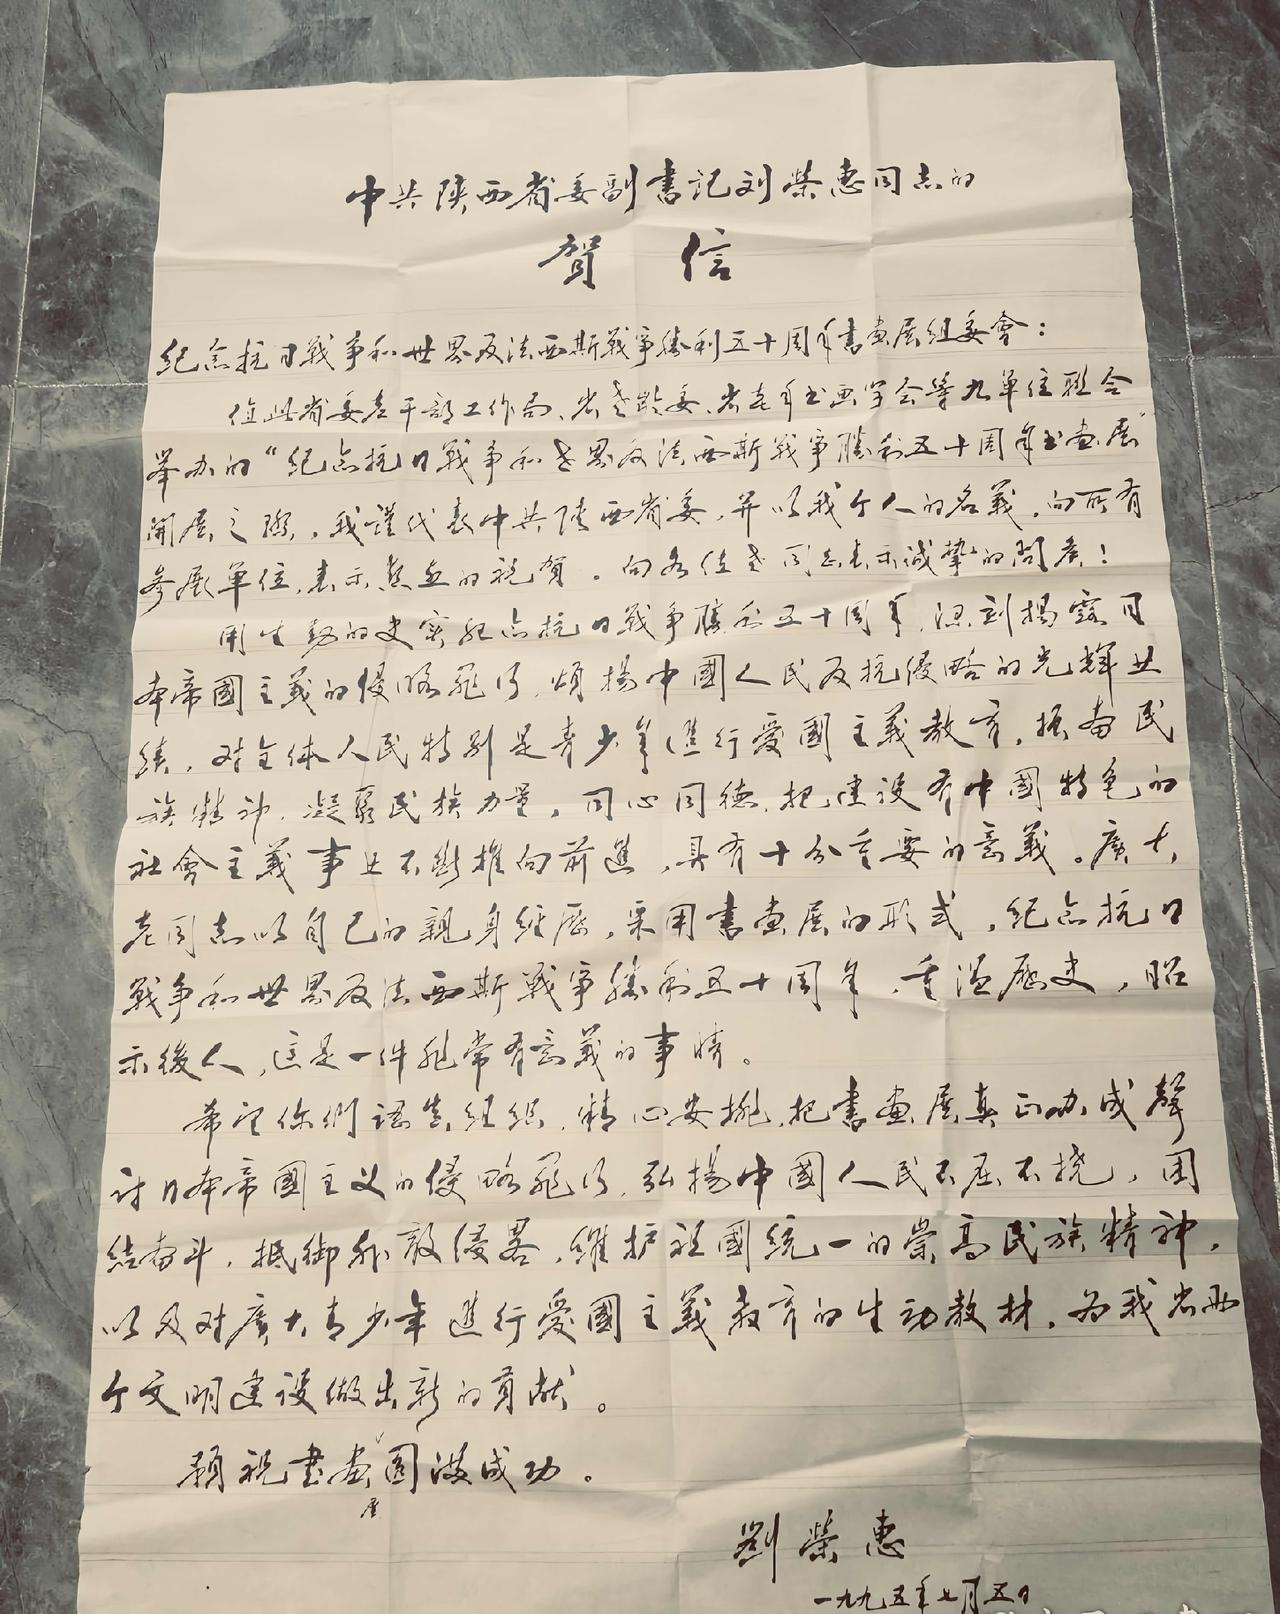 中共陕西省委副書记刘榮惠同志的
賀信
纪念抗日戰争和世界反法西斯戰爭勝利五十周年書画展组委會：
值此省委老干部工作局、省老龄委、省老年书画学会等九单位联合
举办的“纪念抗日戰争和世界反法西斯戰爭勝利五十周年书画展”
開展之際，我谨代表中共陕西省委，并以我个人的名義，向所有
参展单位，表示热烈的祝賀。向各位老同志表示诚挚的問候！
用生動的史实纪念抗日戰争勝利五十周年，深刻揭露日
本帝國主義的侵略罪行，頌揚中國人民反抗侵略的光輝业
績，对全体人民特别是青少年進行愛國主義教育，振奋民
族精神，凝聚民族力量，同心同德，把建设有中國特色的
社會主義事业不断推向前進，具有十分重要的意義。廣大
老同志以自己的親身经歷，采用書画展的形式，纪念抗日
戰争和世界反法西斯戰爭勝利五十周年，重温歷史，昭
示後人，這是一件非常有意義的事情。
希望你們認真组织，精心安排，把書画展真正办成聲
讨日本帝國主义的侵略罪行，弘揚中國人民不屈不撓，团
结奋斗，抵御外敌侵略，維护祖國統一的崇高民族精神，
以及对廣大青少年進行愛國主義教育的生动教材，为我省两
个文明建设做出新的貢献。
預祝書画展圆满成功。
劉榮惠
一九九五年七月五日